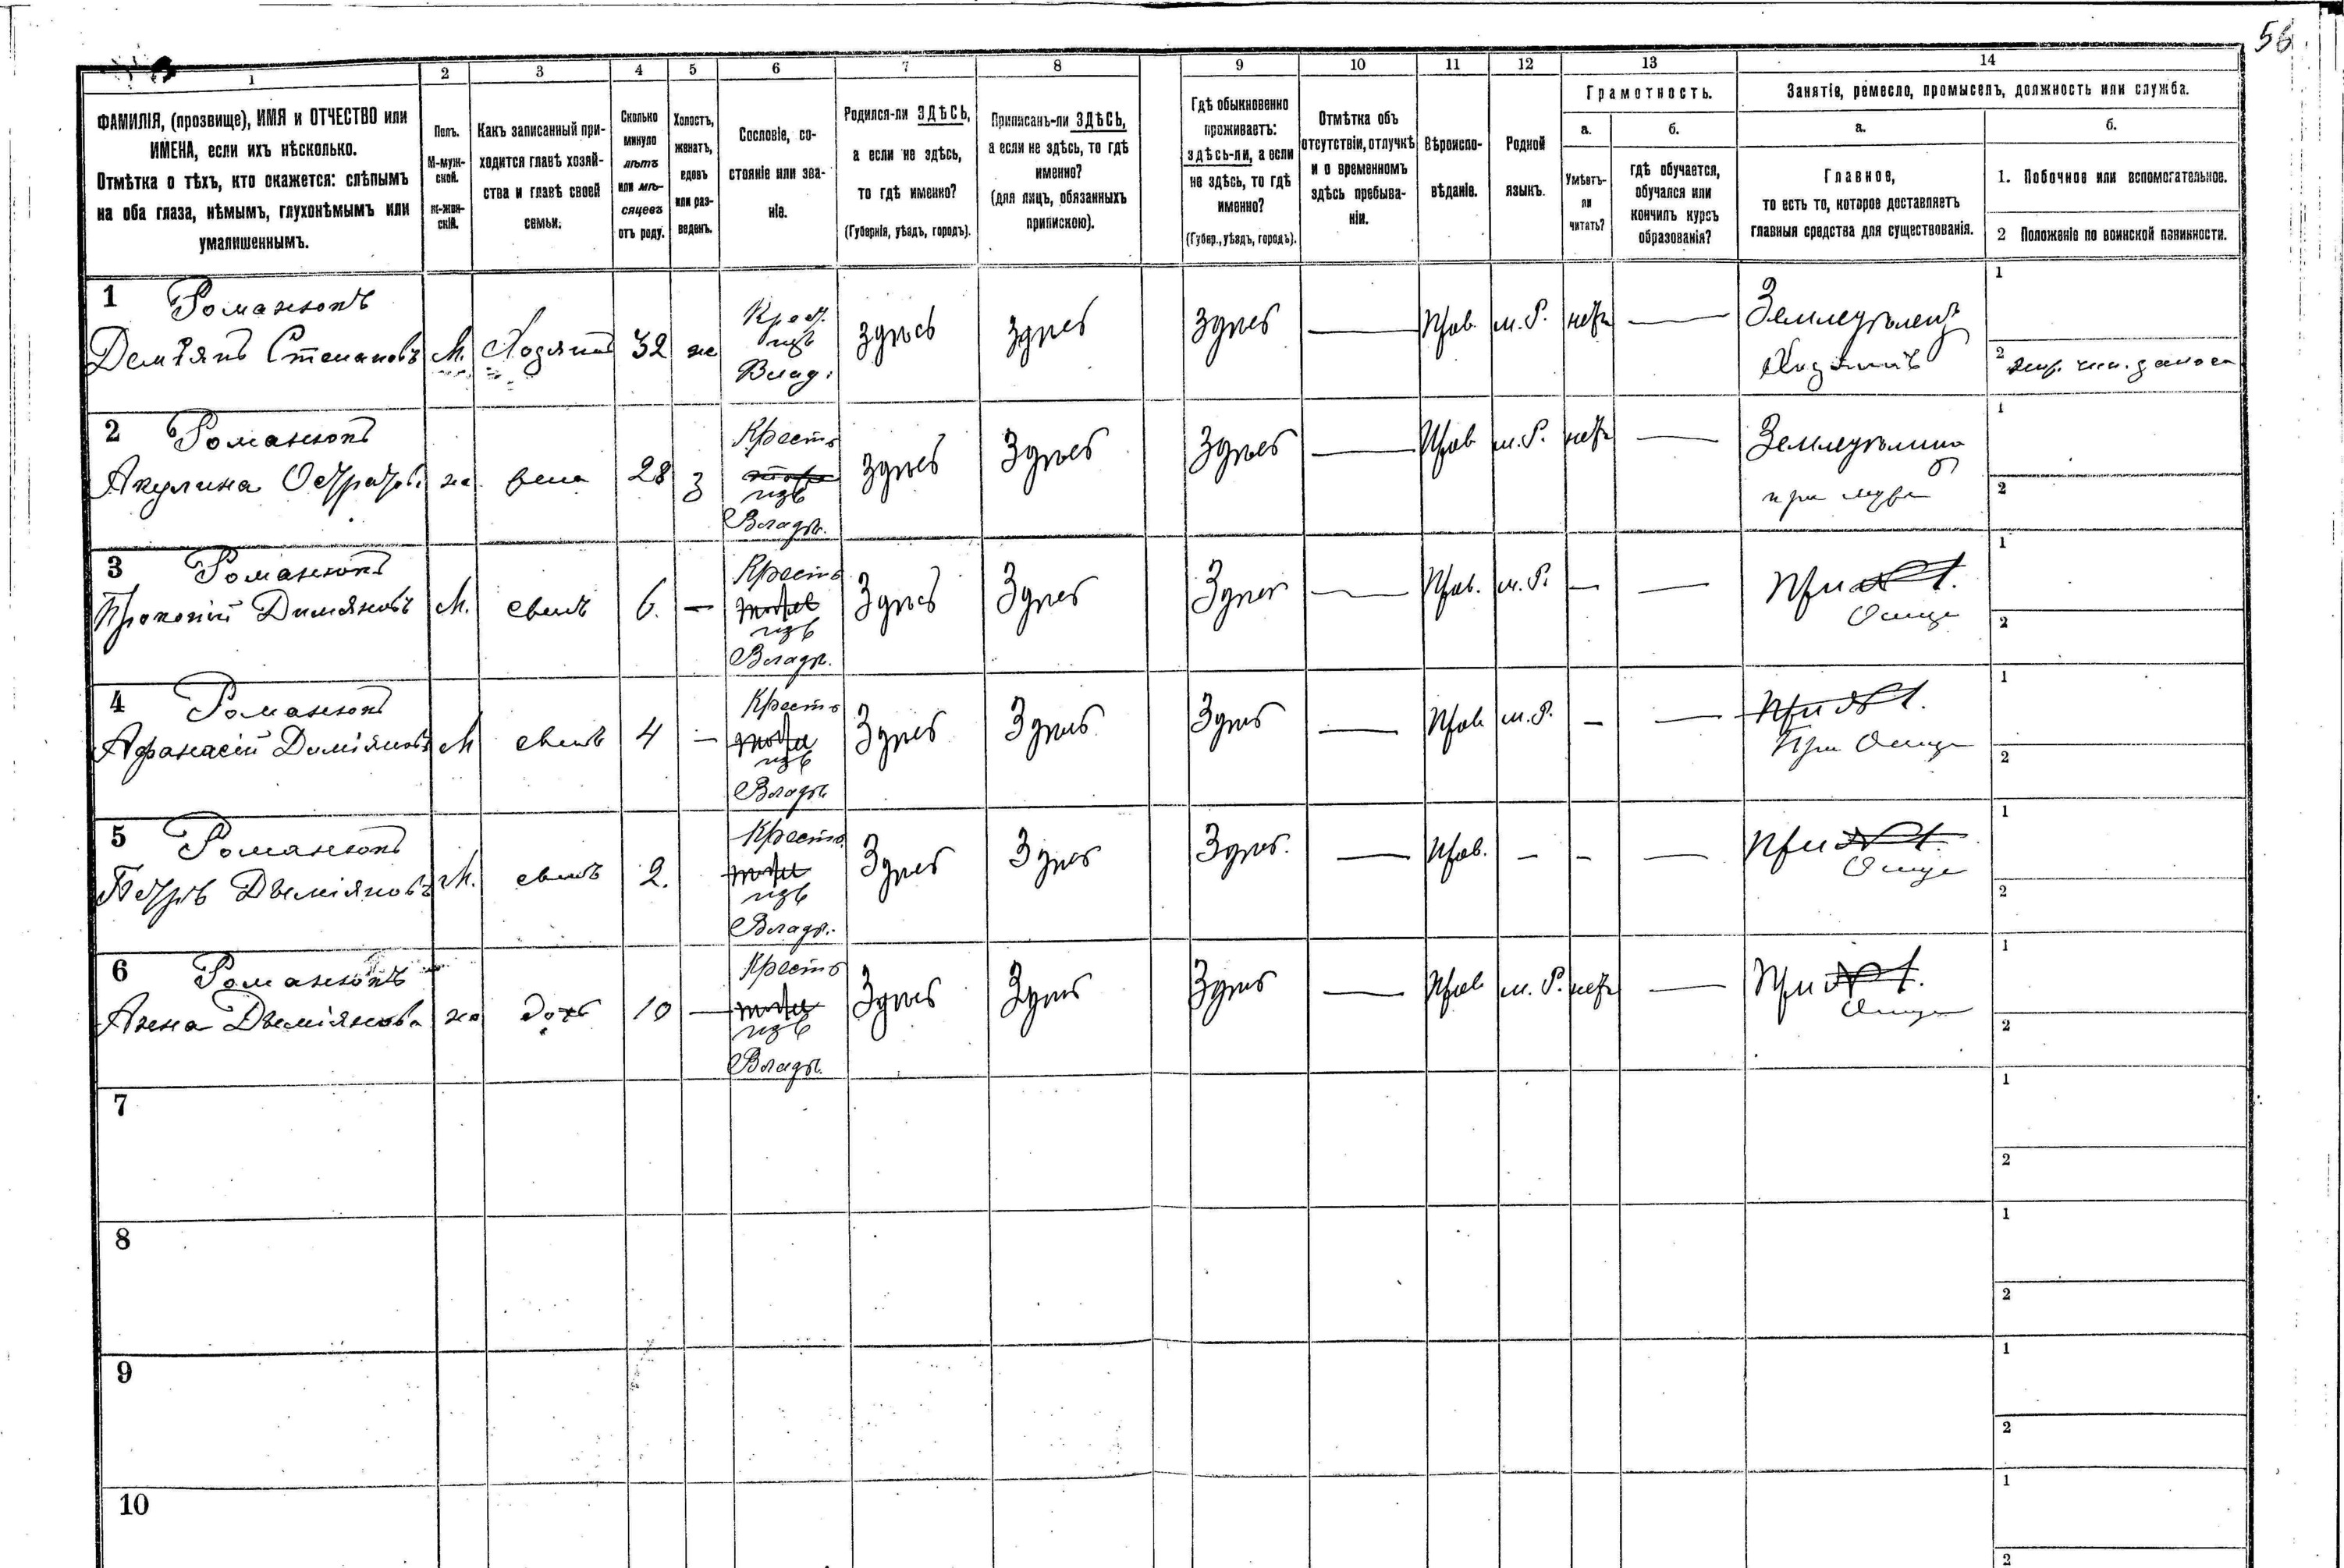 56
1 2 3 4 5 6 7 8 9 10 11 12 13 14
ФАМИЛІЯ, (прозвище), ИМЯ и ОТЧЕСТВО или
ИМЕНА, если ихъ нѣсколько.
Отмѣтка о тѣхъ, кто окажется: слѣпымъ
на оба глаза, нѣмымъ, глухонѣмымъ или
умалишеннымъ.
Полъ.
М-муж-
ской.
ж-жен-
скій.
Какъ записанный при-
ходится главѣ хозяй-
ства и главѣ своей
семьи.
Сколько
минуло
лѣтъ
или мѣ-
сяцевъ
отъ роду.
Холостъ,
женатъ,
вдовъ
или раз-
веденъ.
Сословіе, со-
стояніе или зва-
ніе.
Родился-ли ЗДѢСЬ,
а если не здѣсь,
то гдѣ именно?
(Губернія, уѣздъ, городъ).
Приписанъ-ли ЗДѢСЬ,
а если не здѣсь, то гдѣ
именно?
(для лицъ, обязанныхъ
припискою).
Гдѣ обыкновенно
проживаетъ:
здѣсь-ли, а если
не здѣсь, то гдѣ
именно?
(Губер., уѣздъ, городъ).
Отмѣтка объ
отсутствіи, отлучкѣ
и о временномъ
здѣсь пребыва-
ніи.
Вѣроиспо-
вѣданіе.
Родной
языкъ.
Грамотность.
а.
Умѣетъ-
ли
читать?
б.
гдѣ обучается,
обучался или
кончилъ курсъ
образованія?
Занятіе, ремесло, промыселъ, должность или служба.
а.
Главное,
то есть то, которое доставляетъ
главныя средства для существованія.
б.
1. Побочное или вспомогательное.
2 Положеніе по воинской повинности.
1 Романюкъ
Демʼянъ Степановъ М. Хозяинъ 32 же Крест. изъ Влад. здѣсь здѣсь здѣсь — Прав. м. Р. нетъ — Земледѣлецъ
Хозяинъ
1
2
2 Романюкъ
Акулина ж. жена 28 з Крестъ изъ Владѣ. здѣсь Здѣсь Здѣсь — Прав м. Р. нетъ —
при мужѣ
1
2
3 Романюкъ
Прокопій Димяновъ М. сынъ 6. — Крестъ изъ Владѣ. Здѣсь Здѣсь Здѣсь — Прав. м. Р. — — При № 1.
Отце
1
2
4 Романюкъ
Афанасій Диміяновъ М сынъ 4 — Крестъ изъ Владѣ Здѣсь Здѣсь Здѣсь — Прав м. Р. — — При № 1.
При Отце
1
2
5 Романюкъ
Петръ Дѣміяновъ М. сынъ 2. Крестъ. изъ Владѣ. Здѣсь Здѣсь Здѣсь. — Прав. — — — При № 1.
Отце
1
2
6 Романюкъ
Анна Дѣміянова же дочь 10 — Крестъ изъ Владѣ. Здѣсь Здѣсь Здѣсь — Прав м. Р. нетъ — При № 1.
Отце
1
2
7
1
2
8
1
2
9
1
2
10
1
2